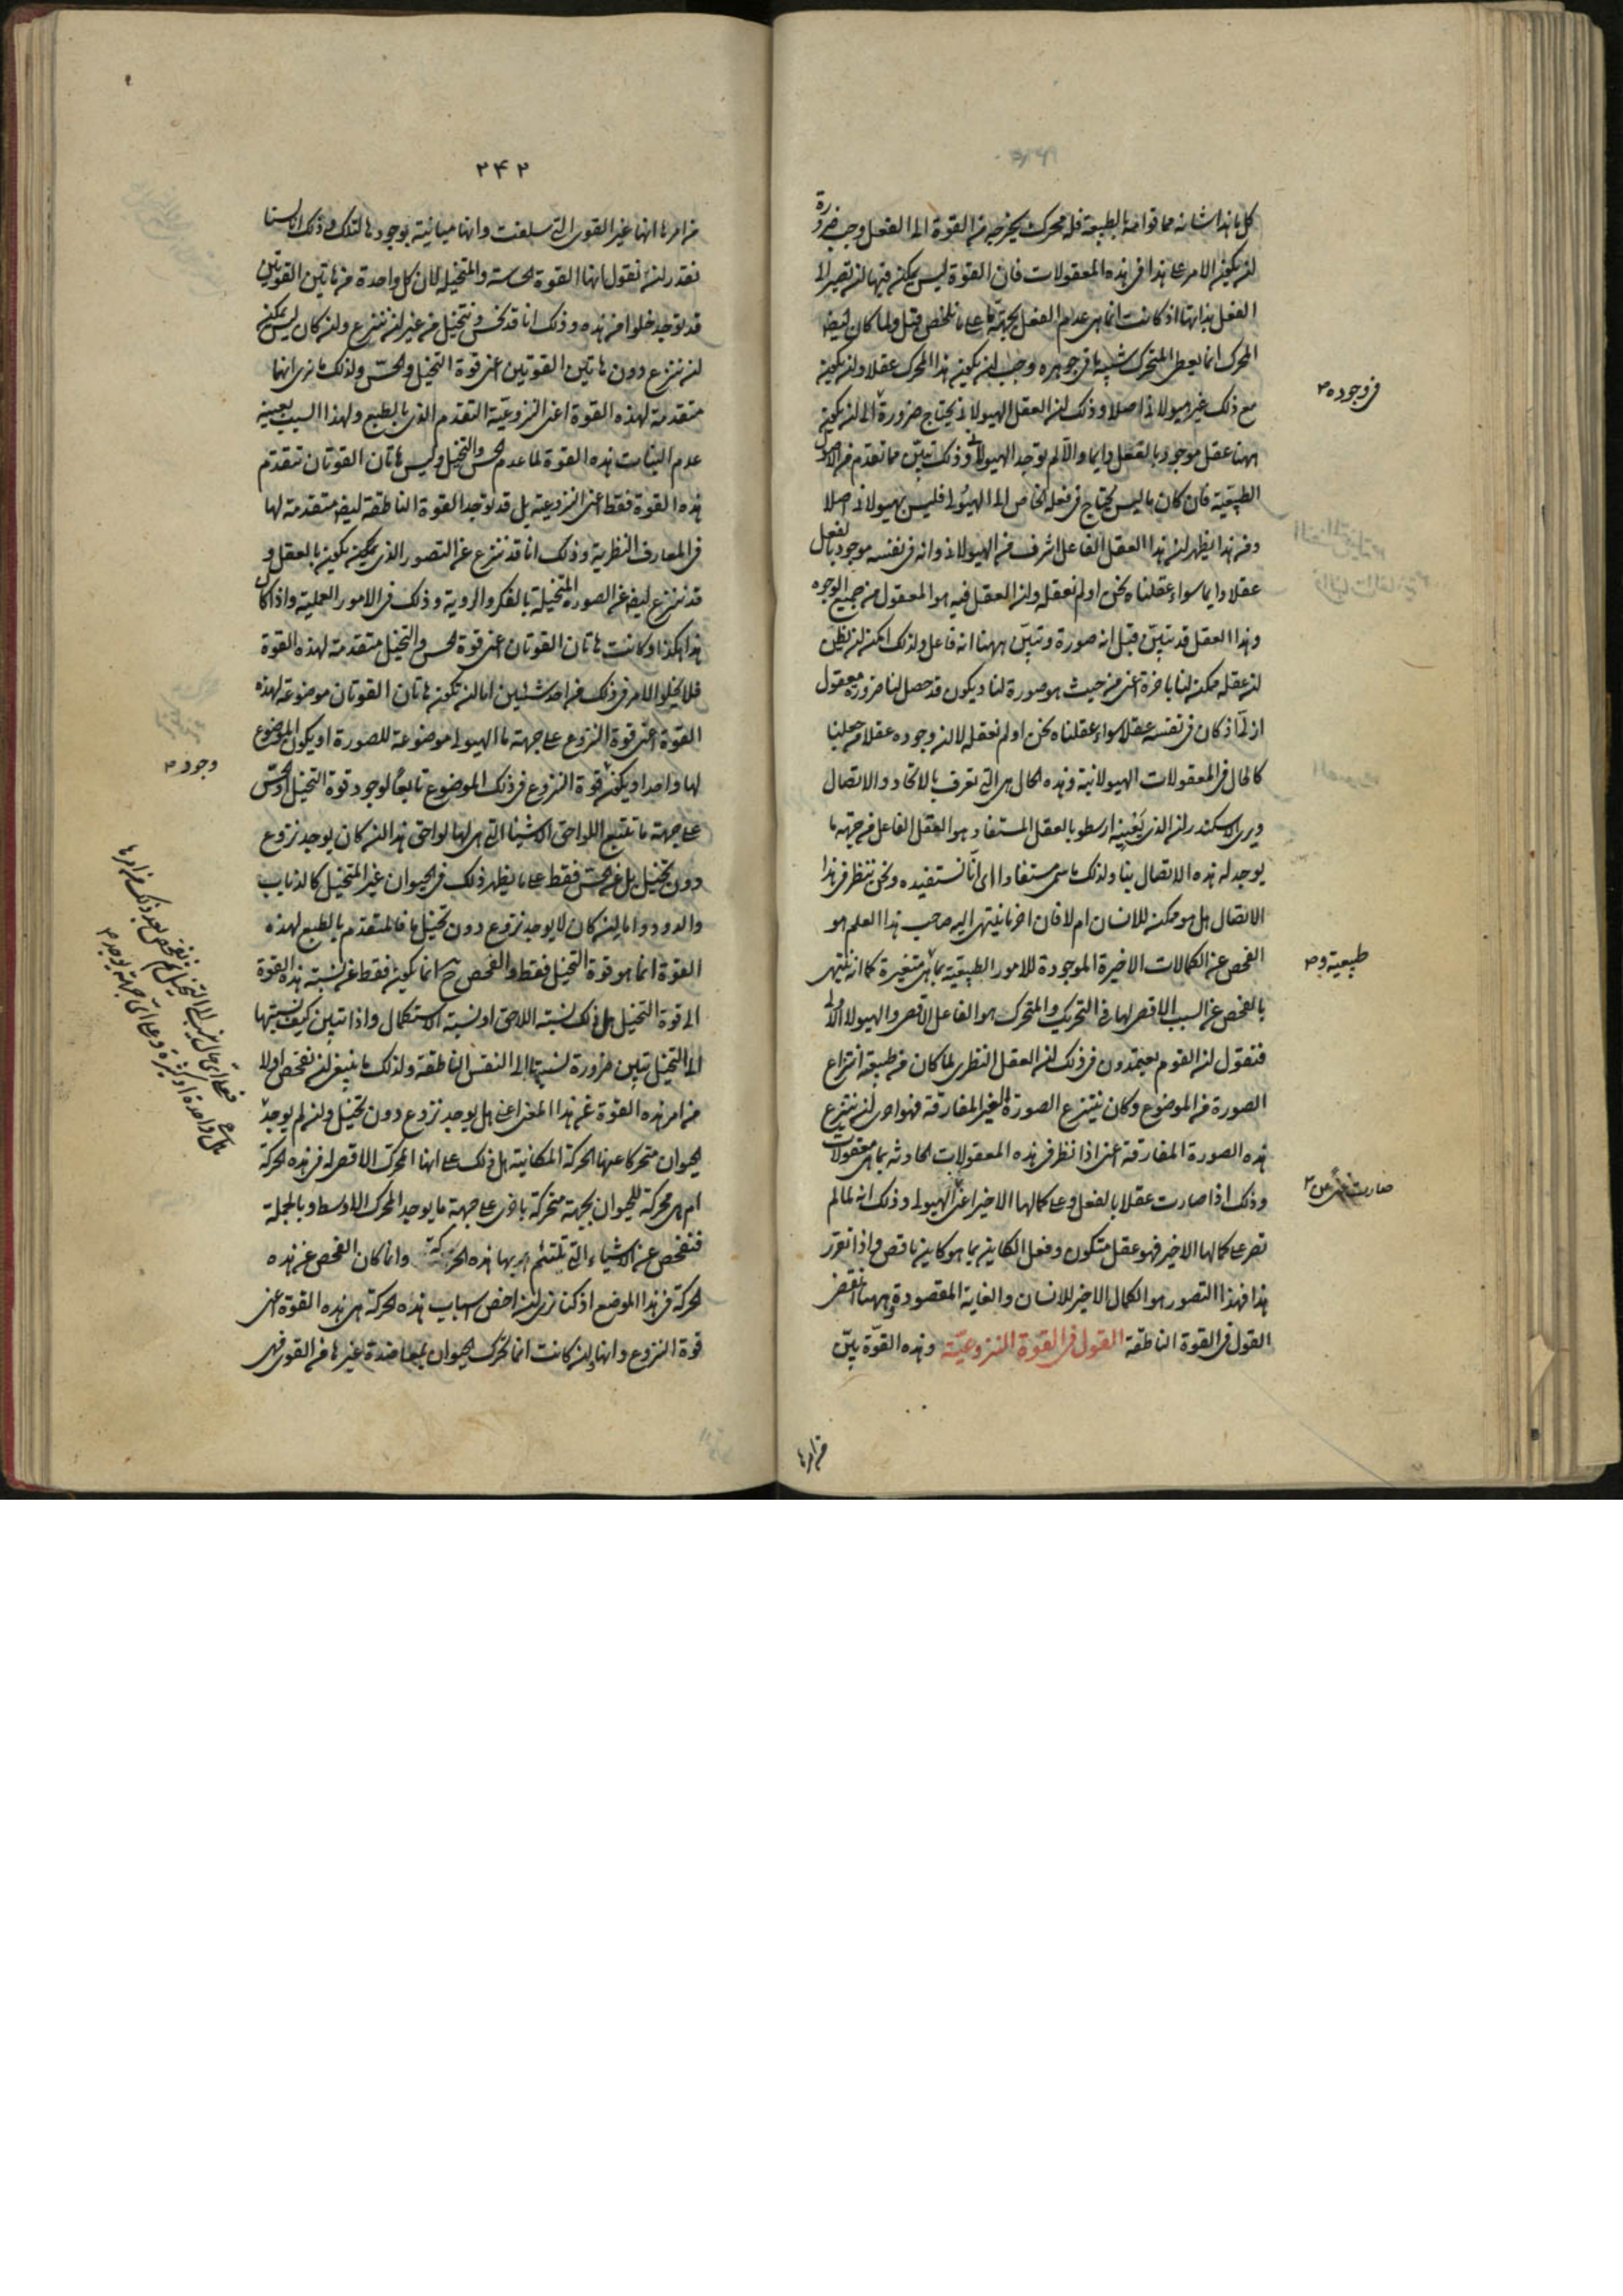 كل ما هذا شانه مما قوامه بالطبيعة فله محرك يخرجه من القوة الى الفعل وجب ضرورة
ان يكون الامر على هذا فى هذه المعقولات فان القوة ليس يمكن فيها ان تصير الى
الفعل بذاتها اذ كانت انما هى عدم الفعل بجهة ما على ما تلخص قبل ولما كان ايضا
المحرك انما يعطى المتحرك شبيه ما فى جوهره وجب ان يكون هذا المحرك عقلا وان يكون
مع ذلك غير هيولانى اصلا وذلك ان العقل الهيولانى يحتاج ضرورة الى ان يكون
ههنا عقل موجود بالفعل دايما والا لم يوجد الهيولانى وذلك تبين مما تقدم من الاصول
الطبيعية فان كان ما ليس يحتاج فى فعله الخاص الى الهيولى فليس بهيولانى اصلا
ومن هذا يظهر ان هذا العقل الفاعل اشرف من الهيولانى وانه فى نفسه موجود بالفعل
عقلا دايما سواء عقلناه نحن او لم نعقله وان العقل فيه هو المعقول من جميع الوجوه
وهذا العقل قد تبين قبل انه صورة وتبين ههنا انه فاعل ولذلك امكن ان يظن
ان عقله ممكن لنا باخرة اعنى من حيث هو صورة لنا ويكون قد حصل لنا ضرورة معقول
ازلى اذ كان فى نفسه عقلا سواء عقلناه نحن او لم نعقله لا ان وجوده عقلا من جعلنا
كالحال فى المعقولات الهيولانية وهذه الحال هى التى تعرف بالاتحاد والاتصال
ويرى الاسكندر ان الذى يعنيه ارسطو بالعقل المستفاد هو العقل الفاعل من جهة ما
يوجد له هذه الاتصال بنا ولذلك ما سمى مستفادا اى انا نستفيده ونحن ننظر فى هذا
الاتصال هل هو ممكن للانسان ام لا فان اخر ما ينتهى اليه صاحب هذا العلم هو
الفحص عن الكمالات الاخيرة الموجودة للامور الطبيعية بما هى متغيرة كما انه ينتهى
بالفحص عن السبب الاقصى لها فى التحريك والمتحرك هو الفاعل الاقصى والهيولا الاولى
فنقول ان القوم يعتمدون فى ذلك ان العقل النظرى لما كان من طبيعته انتزاع
الصورة من الموضوع وكان ينتزع الصورة الغير المفارقة فهو احرى ان ينتزع
هذه الصورة المفارقة اعنى اذا نظر فى هذه المعقولات الحادثه بما هى معقولات
وذلك اذا صارت عقلا بالفعل وعلى كمالها الاخير اعنى الهيولى وذلك انه لما لم
تصر على كمالها الاخير فهو عقل متكون وفعل الكاين بما هو كاين ناقص واذا تقرر
هذا فهذا التصور هو الكمال الاخير للانسان والغاية المقصودة وههنا انقضى
القول فى القوة الناطقة القول فى القوة النزوعيّة وهذه القوّة بيّن
فى وجوده
طبيعية و
صارت
من امرها
٢٤٢
من امرها انها غير القوى التى سلفت وانها مباينة بوجودها لتلك وذلك انا لسنا
نقدر ان نقول انها القوة الحاسة والمتخيله لان كل واحدة من هاتين القوتين
قد توجد خلوا من هذه وذلك انا قد نحس ونتخيل من غير ان ننزع وان كان ليس يمكن
ان ننزع دون هاتين القوتين اعنى قوة التخيل والحسّ ولذلك ما نرى انها
متقدمة لهذه القوة اعنى النزوعيّة التقدم الذى بالطبع ولهذا السبب بعينه
عدم النبات هذه القوة لما عدم الحس والتخيل وليس هاتان القوتان تتقدم
هذه القوة فقط اعنى النزوعية بل قد توجد القوة الناطقة ايضا متقدمة لها
فى المعارف النظرية وذلك انا قد ننزع عن التصور الذى يمكن يكون بالعقل و
قد ننزع ايضا عن الصورة المتخيلة بالفكر والروية وذلك فى الامور العملية واذا كان
هذا هكذا وكانت هاتان القوتان اعنى قوة الحس والتخيل متقدمة لهذه القوة
فلا يخلو الامر فى ذلك من احد شيئين اما ان تكون هاتان القوتان موضوعة لهذه
القوة اعنى قوة النزوع على جهة ما الهيولى موضوعة للصورة او يكون الموضوع
لها واحدا ويكون قوة النزوع فى ذلك الموضوع تابعاً لوجود قوة التخيل او الحسّ
على جهة ما تتبع اللواحق الاشياء التى هى لها لواحق هذا ان كان يوجد نزوع
دون تخيل بل عن الحسّ فقط على ما يظهر ذلك فى الحيوان غير المتخيل كالذباب
والدود واما ان كان لا يوجد نزوع دون تخيل ما فالمتقدم بالطبع لهذه
القوة انما هو قوة التخيل فقط والفحص ح انما يكون فقط عن نسبة هذه القوة
الى قوة التخيل هل ذلك نسبة اللاحق او نسبة الاستكمال واذا تبين كيف نسبتها
الى التخيل تبين ضرورة نسبتها الى النفس الناطقة ولذلك ما ينبغى ان نفحص اولا
من امر هذه القوة عن هذا المعنى اعنى هل يوجد نزوع دون تخيل وان لم يوجد
الحيوان متحركا عنها الحركة المكانية هل ذلك على انها المحرك الاقصى له فى هذه الحركة
ام هى محركة للحيوان بجهة متحركة باخرى على جهة ما يوجد المحرك الاوسط وبالجملة
فنفحص عن الاشياء التى تلتئم بها هذه الحركة وانما كان الفحص عن هذه
الحركة فى هذا الموضع اذ كنا نرى ان اخص اسباب هذه الحركة هى هذه القوة اعنى
قوة النزوع وانها وان كانت انما تحرك الحيوان بمعاضدة غيرها من القوى فهى
وجود